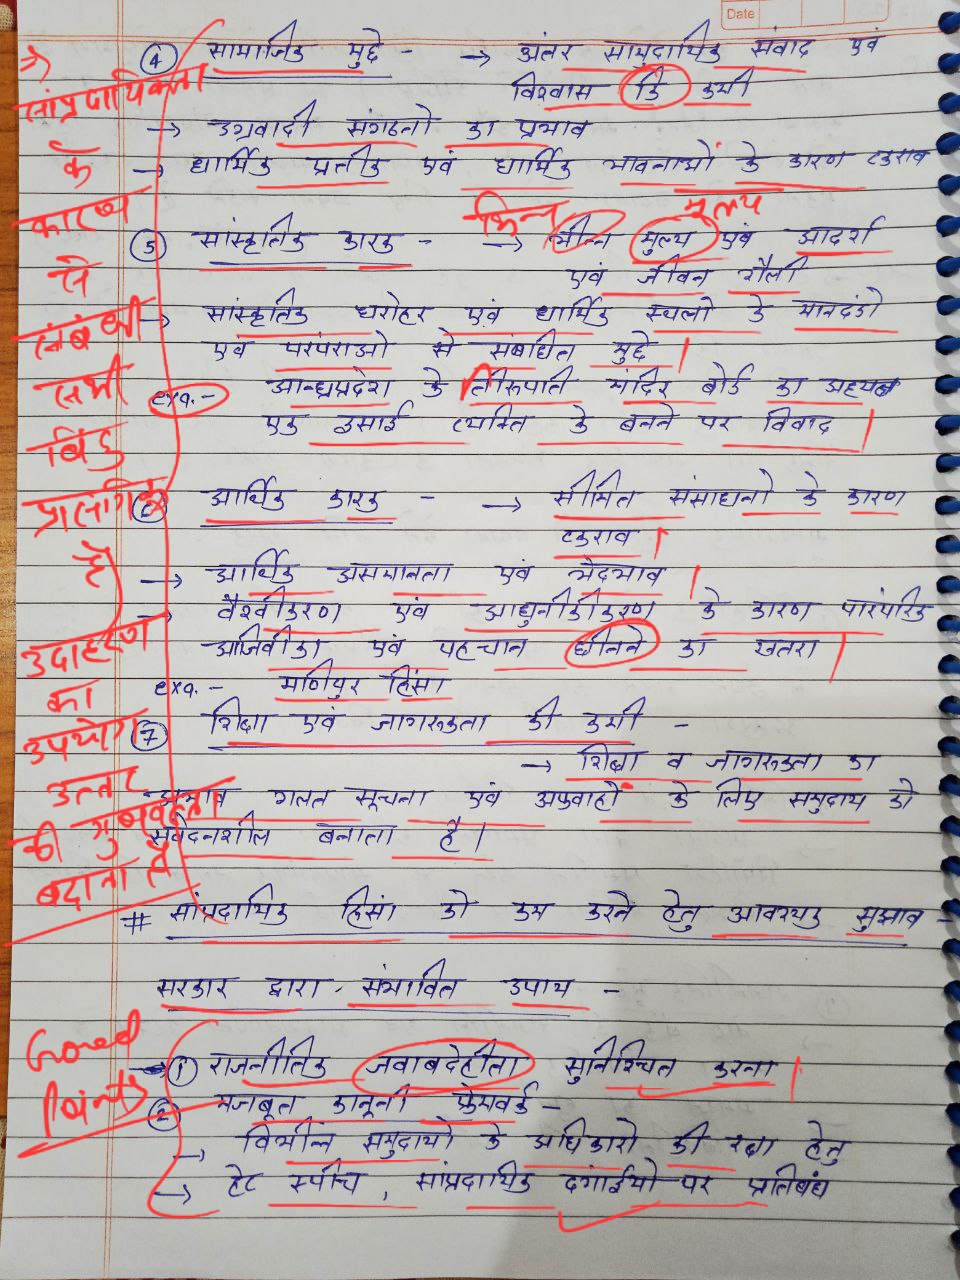 Date
④ सामाजिक मुद्दे - → अंतर सामुदायिक संवाद एवं
विश्वास कि कमी
→ उग्रवादी संगठनो का प्रभाव
→ धार्मिक प्रतीक एवं धार्मिक भावनाओं के कारण टकराव
भिन्न मूल्य
⑤ सांस्कृतिक कारक - → भीन्न मुल्य एवं आदर्श
एवं जीवन शैली
→ सांस्कृतिक धरोहर एवं धार्मिक स्थलो के मानदंडो
एवं परंपराओ से संबंधित मुद्दे |
exa.- आन्ध्रप्रदेश के तिरूपति मंदिर बोर्ड का अध्यक्ष
एक इसाई व्यक्ति के बनने पर विवाद |
⑥ आर्थिक कारक - → सीमित संसाधनो के कारण
टकराव |
→ आर्थिक असमानता एवं भेदभाव |
→ वैश्वीकरण एवं आधुनीकीकरण के कारण पारंपरिक
आजिवीका एवं पहचान छीनने का खतरा |
exa.- मणिपुर हिंसा
⑦ शिक्षा एवं जागरूकता की कमी -
→ शिक्षा व जागरूकता का
अभाव गलत सूचना एवं अफवाहों के लिए समुदाय को
संवेदनशील बनाता है |
# सांप्रदायिक हिंसा को कम करने हेतु आवश्यक सुझाव -
सरकार द्वारा संभावित उपाय -
→ ① राजनीतिक जवाबदेहीता सुनिश्चित करना |
② मजबूत कानूनी फ्रेमवर्क -
→ विभीन्न समुदायो के अधिकारो की रक्षा हेतु
→ हेट स्पीच , सांप्रदायिक दंगाईयो पर प्रतिबंध
⇒ सांप्रदायिकता
के
कारण
से
संबंधी
सभी
बिंदु
प्रासंगिक
हैं
उदाहरण
का
उपयोग
उत्तर
की गुणवत्ता
बढ़ाता है
Good
Points